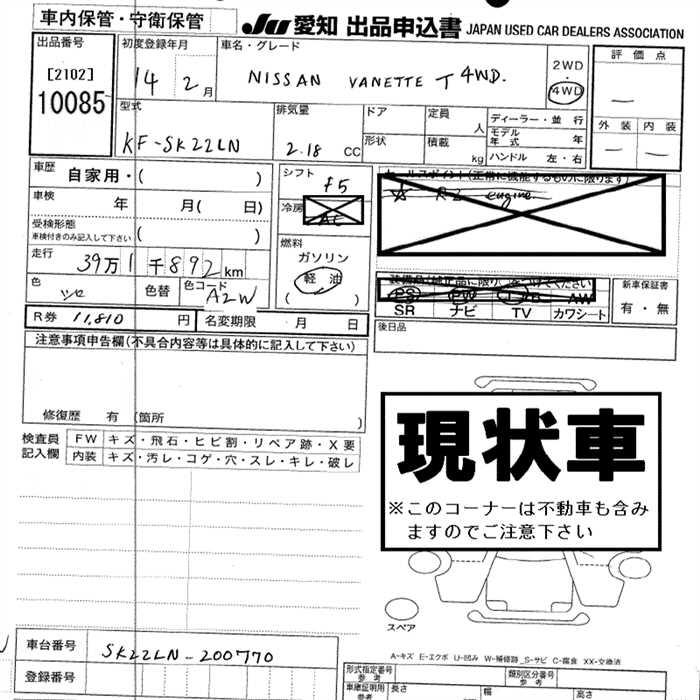 車内保管・守衛保管
JU 愛知 出品申込書 JAPAN USED CAR DEALERS ASSOCIATION
出品番号
[2102]
10085
初度登録年月
14 2月
車名・グレード
NISSAN VANETTE T 4WD.
2WD
・
4WD
評価点
—
外装 内装
— —
型式
KF-SK22LN
排気量
2.18 CC
ドア
形状
定員
人
積載
kg
ディーラー・並行
モデル年式 年
ハンドル 左・右
車歴
自家用・( )
車検
年 月( 日)
受検形態
車検付きのみ記入して下さい ( )
走行
39万1千892km
色
シロ
色替
色コード
A2W
シフト
F5
冷房
AC
燃料
ガソリン
軽油
( )
セールスポイント(正常に機能するものに限ります)
☆ R2 engine
PS PW AW
SR ナビ TV カワシート
新車保証書
有・無
後日品
R券 11,810円
名変期限 月 日
注意事項申告欄(不具合内容等は具体的に記入して下さい)
修復歴 有 (箇所 )
検査員
記入欄
FW キズ・飛石・ヒビ割・リペア跡・X要
内装 キズ・汚レ・コゲ・穴・スレ・キレ・破レ
現状車
※このコーナーは不動車も含み
ますのでご注意下さい
スペア
A-キズ E-エクボ U-凹み W-補修跡 S-サビ C-腐食 XX-交換済
車台番号
SK22LN-200770
登録番号
形式指定番号
参考
類別区分番号
参考
車庫証明用
参考
長さ
幅
高さ